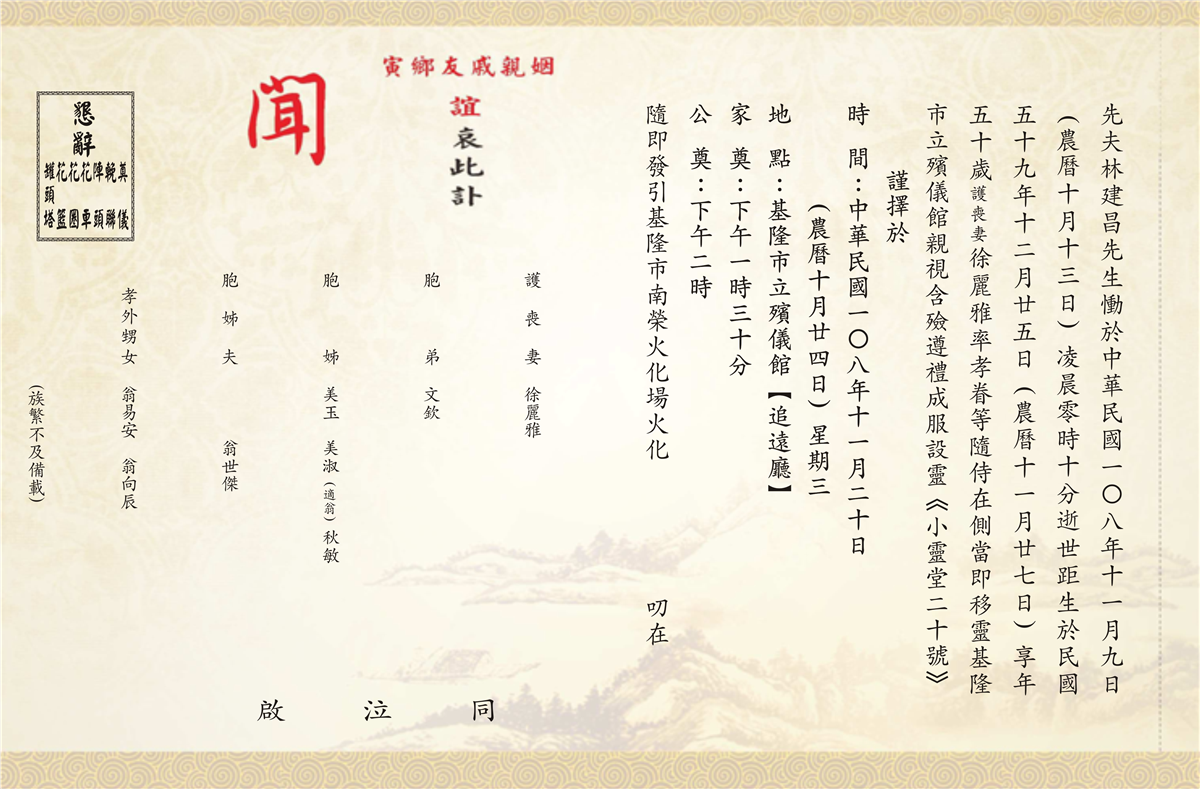 先夫林建昌先生慟於中華民國一〇八年十一月九日
(農曆十月十三日)凌晨零時十分逝世距生於民國
五十九年十二月廿五日(農曆十一月廿七日)享年
五十歲護喪妻徐麗雅率孝眷等隨侍在側當即移靈基隆
市立殯儀館親視含殮遵禮成服設靈《小靈堂二十號》
謹擇於
時 間：中華民國一〇八年十一月二十日
(農曆十月廿四日)星期三
地 點：基隆市立殯儀館【追遠廳】
家 奠：下午一時三十分
公 奠：下午二時
隨即發引基隆市南榮火化場火化 叨在
姻親戚友鄉寅
誼哀此訃
聞
護喪妻 徐麗雅
胞弟 文欽
胞姊 美玉 美淑(適翁) 秋敏
胞姊夫 翁世傑
孝外甥女 翁易安 翁向辰
(族繁不及備載)
同泣啟
懇辭
奠儀
輓聯
陣頭
花車
花圈
花籃
罐頭塔